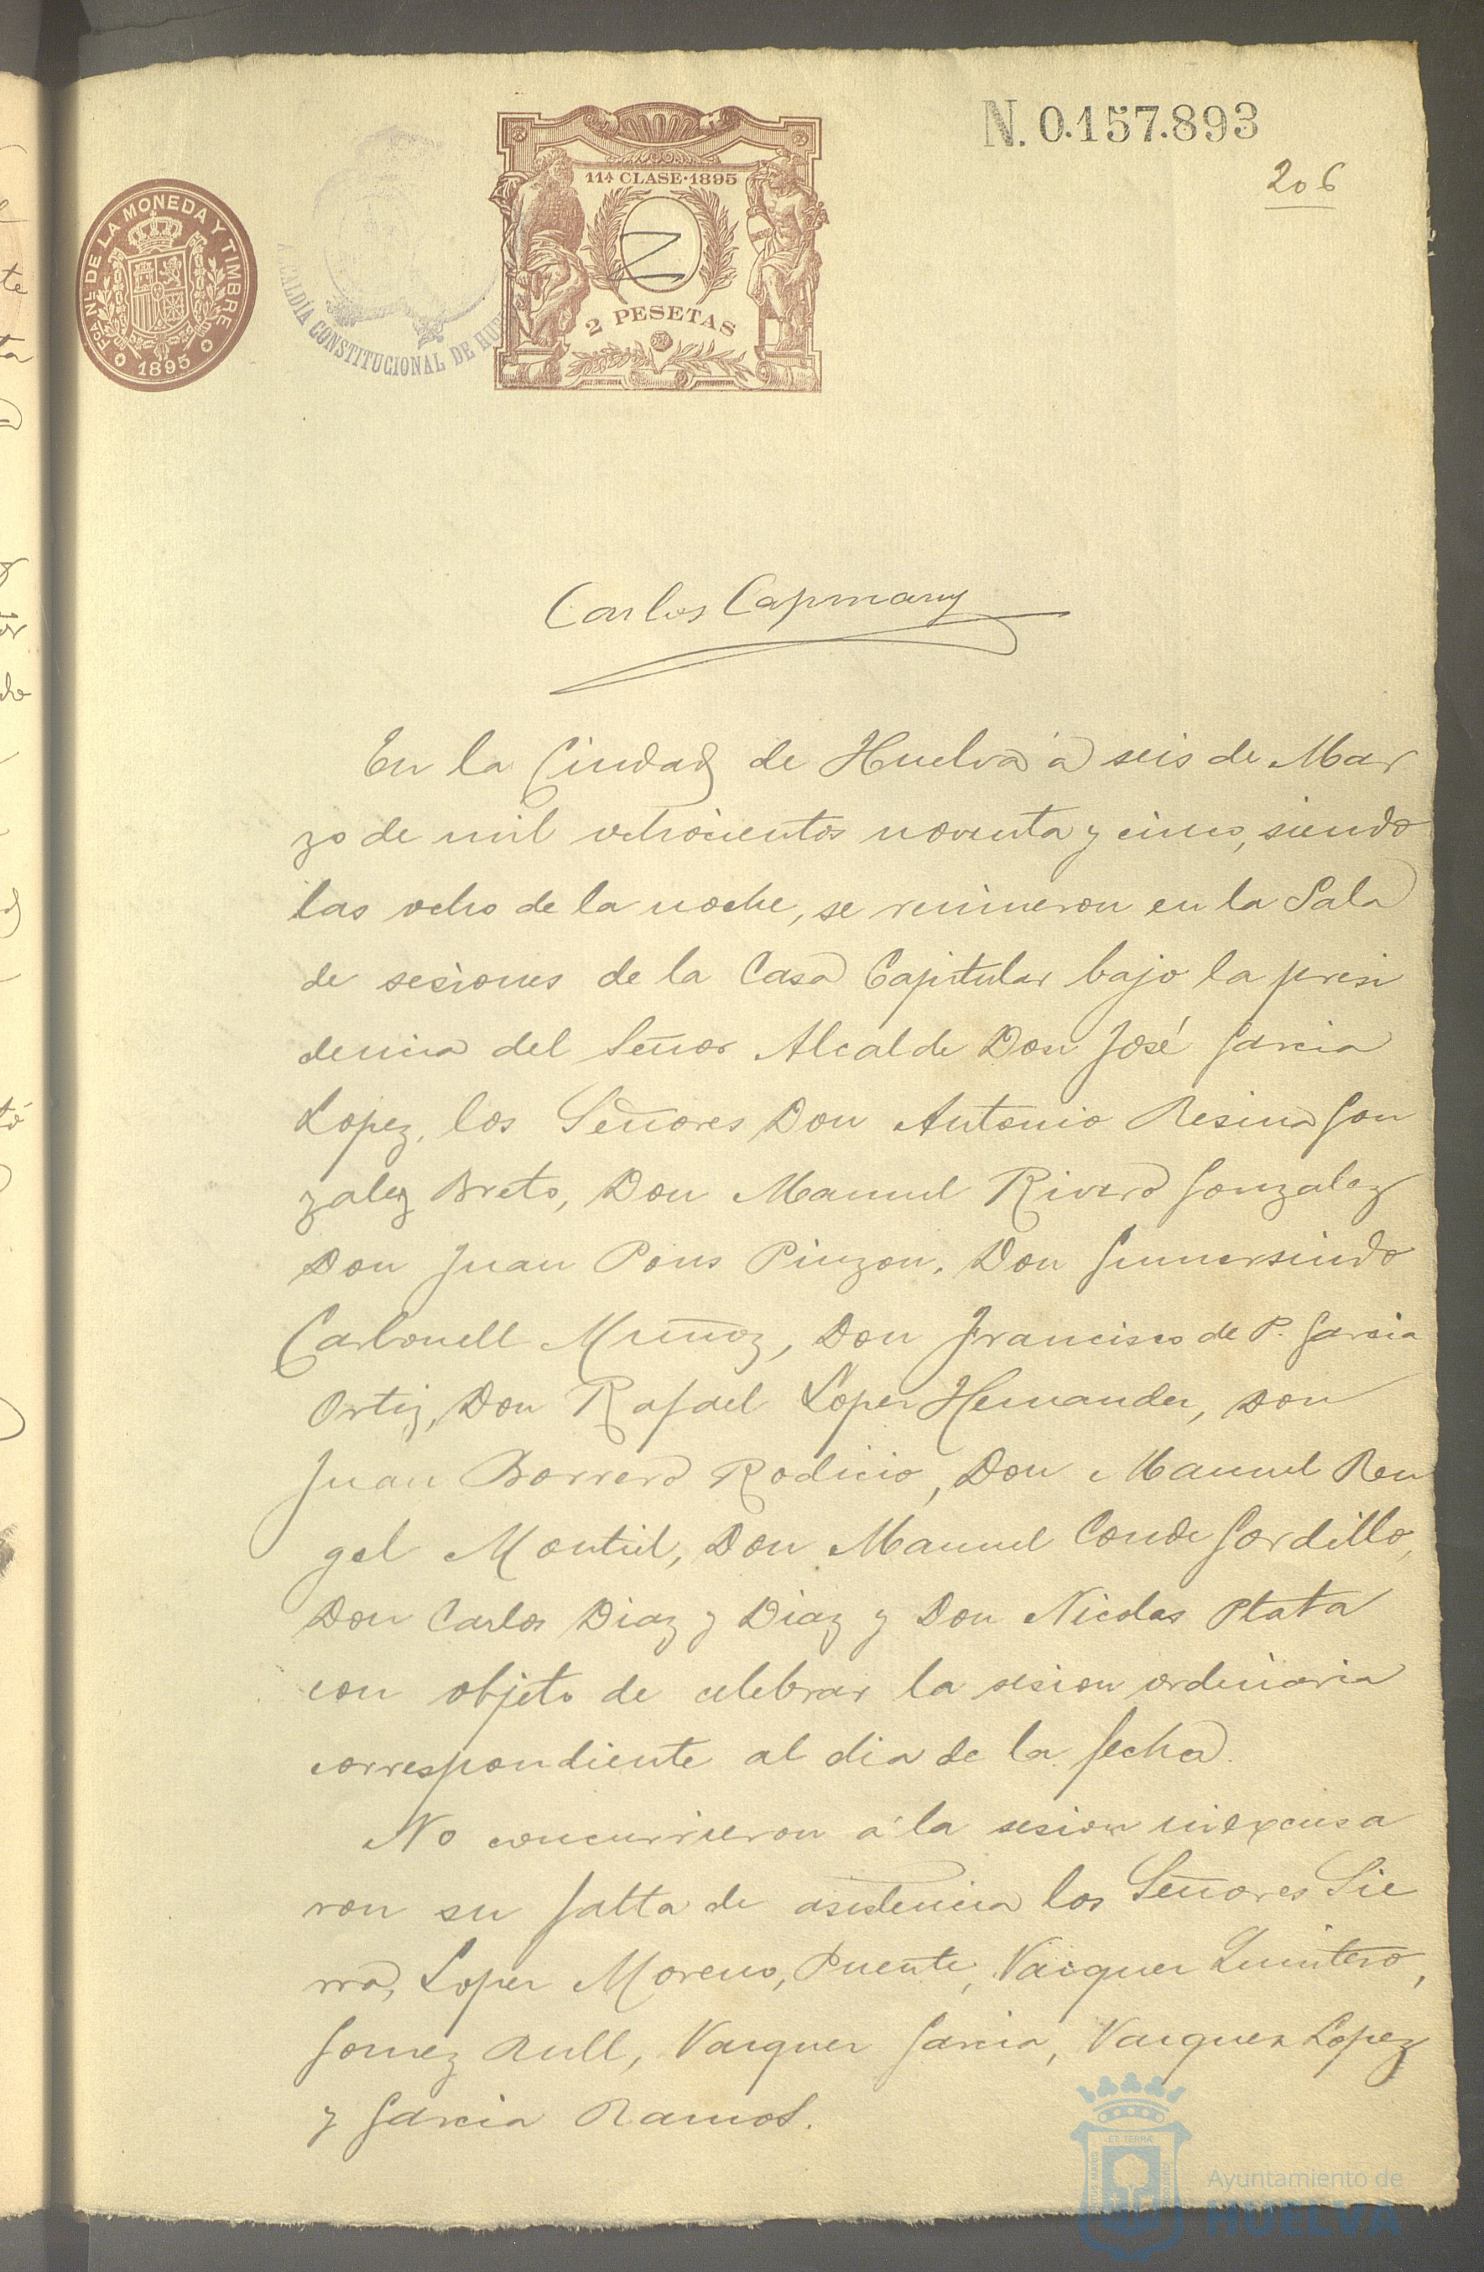 N. 0.157.893
206
11ª CLASE·1895
2 PESETAS
FCA. NL. DE LA MONEDA Y TIMBRE
1895
ALCALDÍA CONSTITUCIONAL DE HUE
Carlos Capmany
En la Ciudad de Huelva á seis de Mar
zo de mil ochocientos noventa y cinco, siendo
las ocho de la noche, se reunieron en la Sala
de sesiones de la Casa Capitular bajo la presi
dencia del Señor Alcalde Don José Garcia
Lopez, los Señores Don Antonio Resina Gon
zalez Breto, Don Manuel Rivero Gonzalez
Don Juan Pons Pinzon, Don Gumersindo
Carbonell Muñoz, Don Francisco de P. Garcia
Ortiz, Don Rafael Lopez Hernandez, Don
Juan Borrero Rodicio, Don Manuel Ren
gel Montiel, Don Manuel Conde Gordillo,
Don Carlos Diaz y Diaz y Don Nicolas Plata
con objeto de celebrar la sesion ordinaria
correspondiente al dia de la fecha.
No concurrieron á la sesion ni excusa
ron su falta de asistencia los Señores Sie
rra, Lopez Moreno, Puente, Vazquez Quintero,
Gomez Rull, Vazquez Garcia, Vazquez Lopez
y Garcia Ramos.
Ayuntamiento de
HUELVA